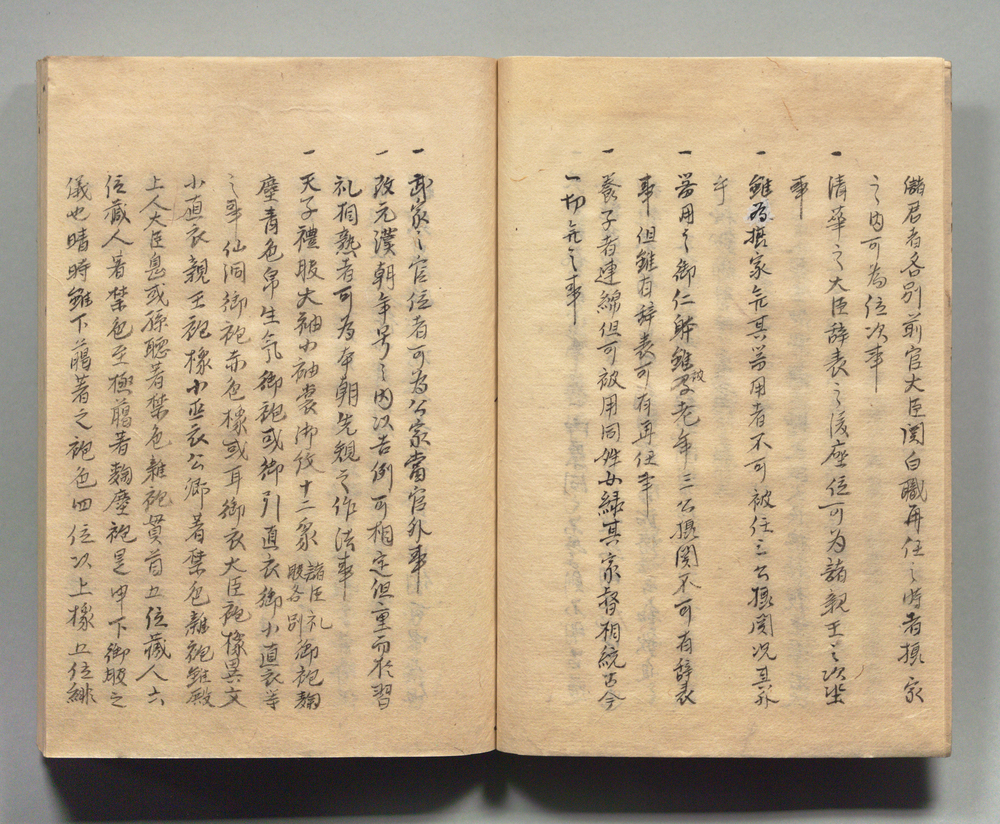 儲君者各別前官大臣関白職再任之時者摂家
之内可為位次事
一 清華之大臣辞表之後座位可為諸親王之次坐
事
一 雖為摂家無其器用者不可被任三公摂関况其外
乎
一 器用之御仁躰雖被及老年三公摂関不可有辞表
事但雖有辞表可有再任事
一 養子者連綿但可被用同姓女縁其家督相続古今
一切無之事
一 武家之官位者可為公家當官外事
一 改元漢朝年号之内以吉例可相定但重而於習
礼相熟者可為本朝先規之作法事
一 天子禮服大袖小袖裳御紋十二象 諸臣礼服各別 御袍麹
塵青色帛生気御袍或御引直衣御小直衣等
之事仙洞御袍赤色橡或耳御衣大臣袍橡異文
小直衣親王袍橡小直衣公卿著禁色雑袍雖殿
上人大臣息或孫聴著禁色雑袍貫首五位蔵人六
位蔵人著禁色至極﨟著麹塵袍是申下御服之
儀也晴時雖下﨟著之袍色四位以上橡五位緋